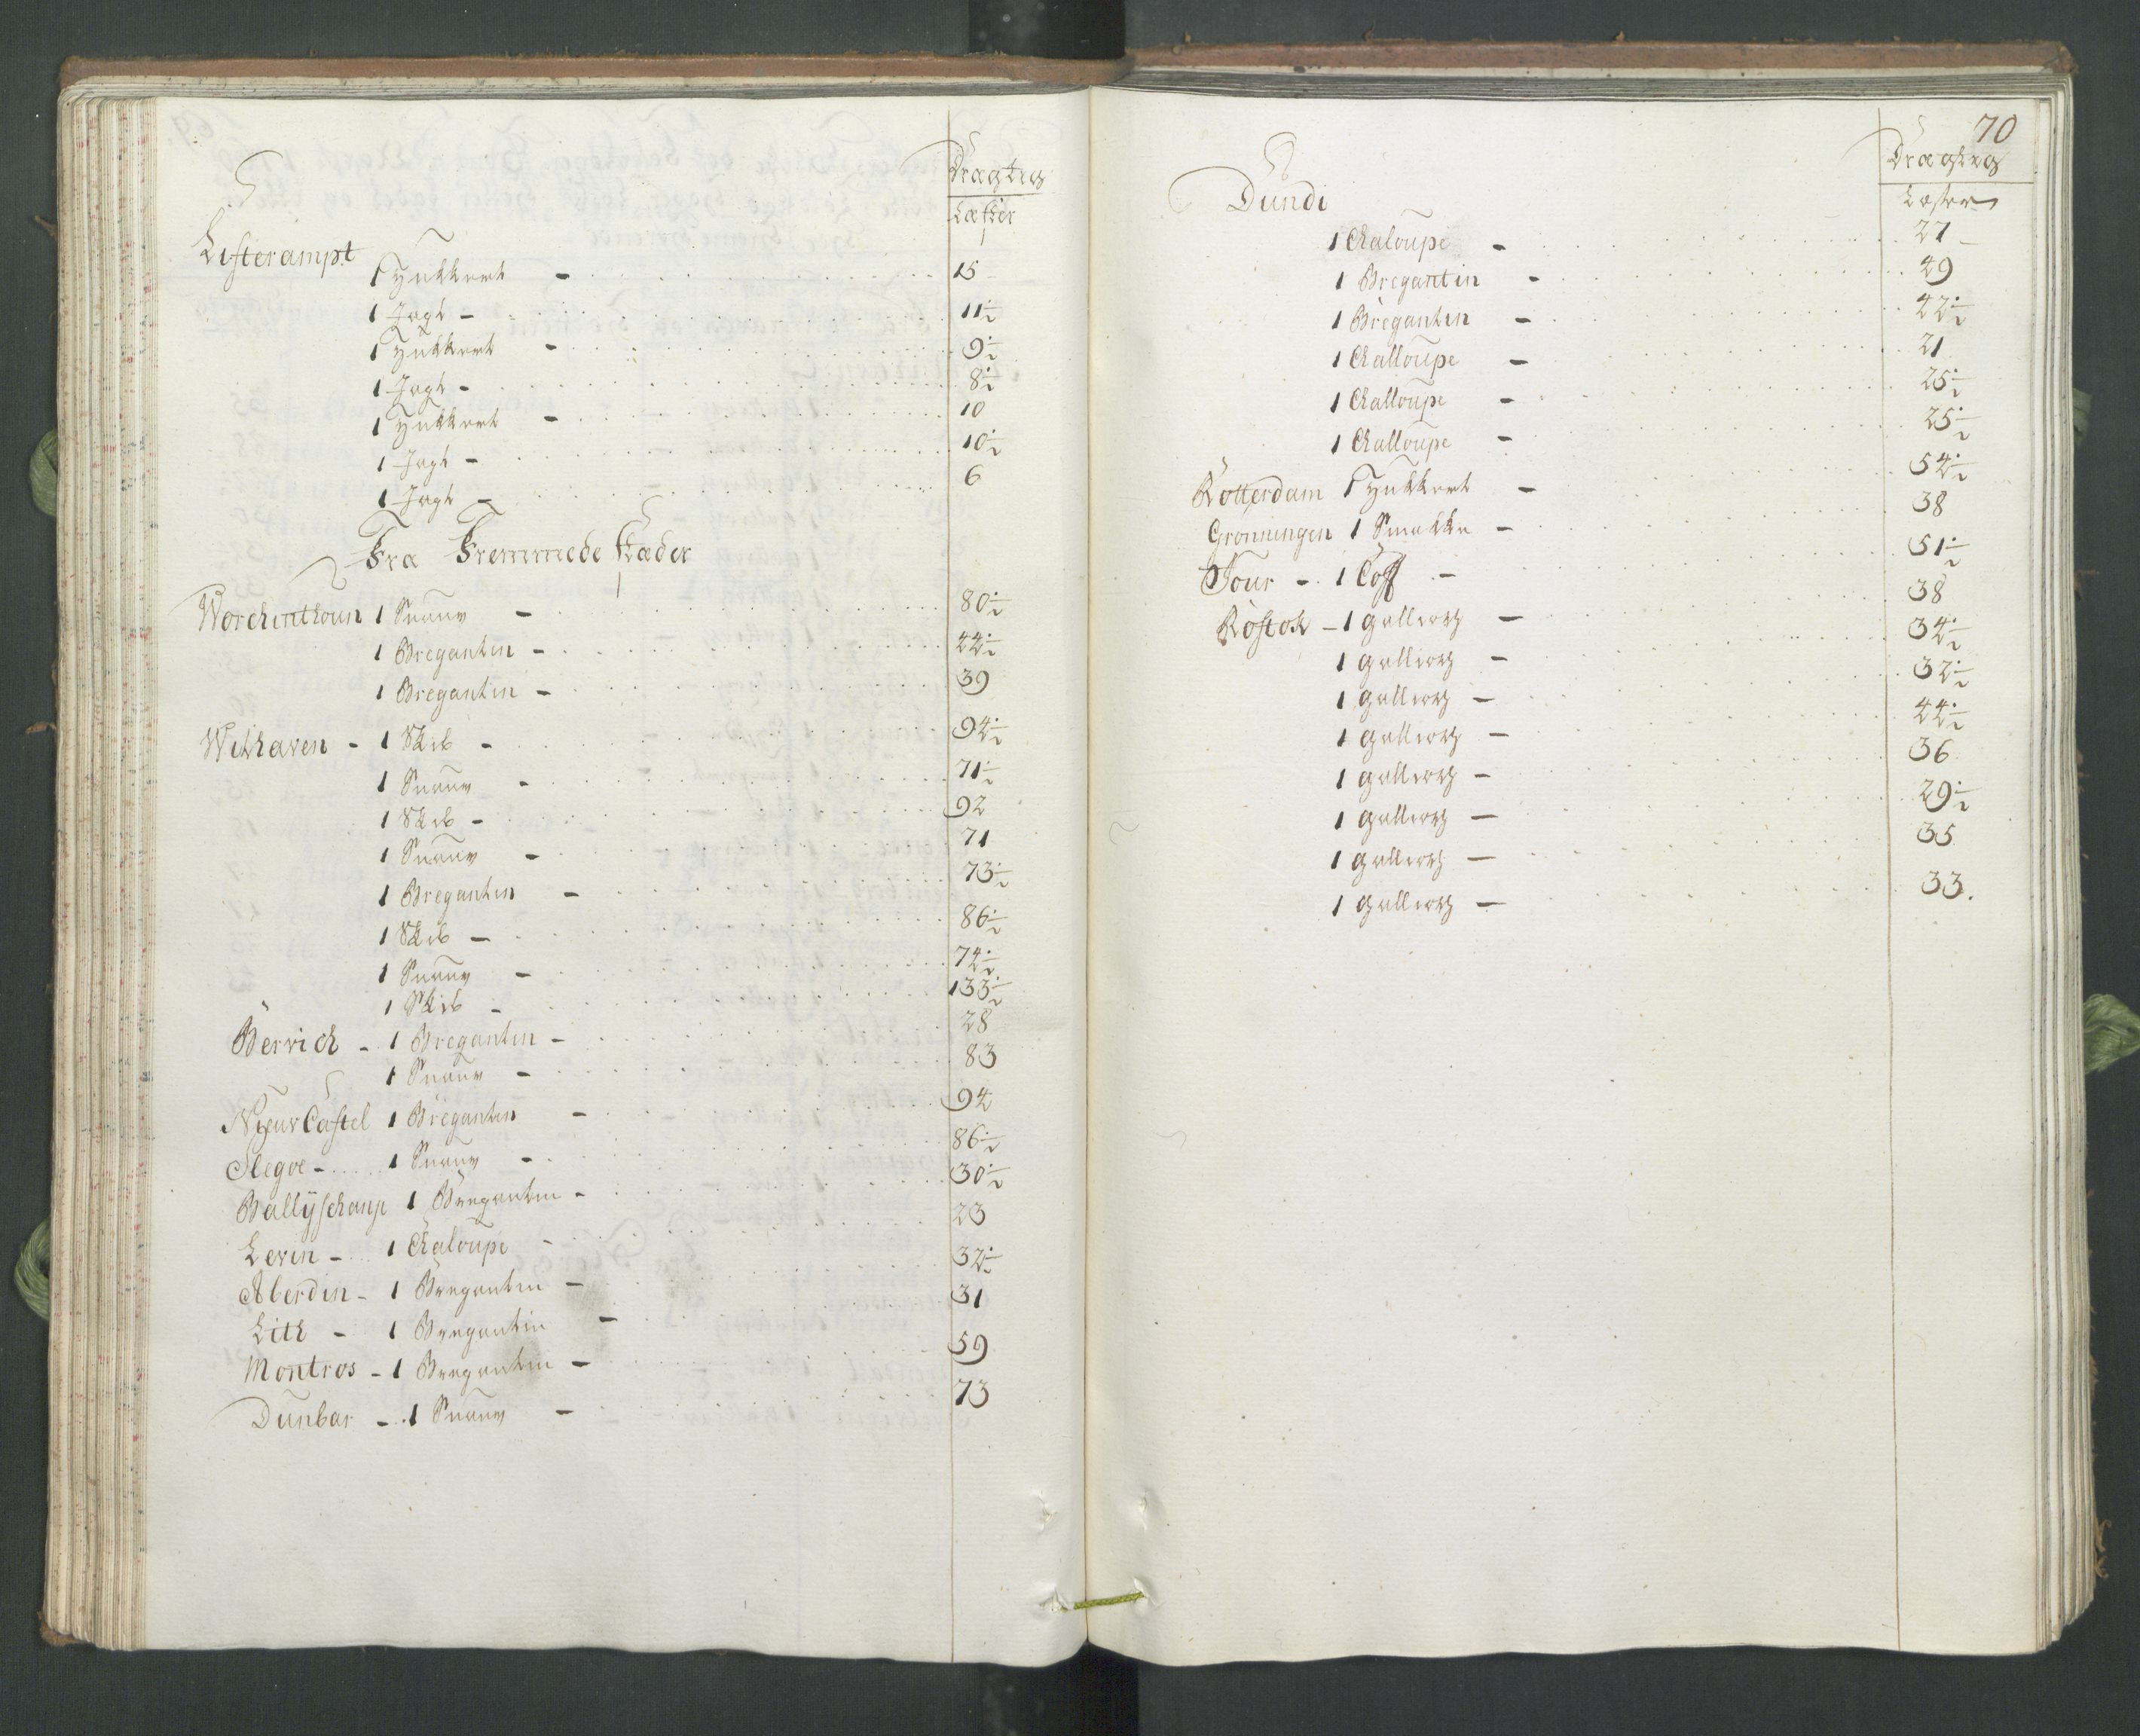 Dragteg
Læster
Listerampt 1 Hukkert - 15
1 Jagt - 11½
1 Hukkert - 9½
1 Jagt - 8½
1 Hukkert - 10
1 Jagt - 10½
1 Jagt - 6
Fra Fremmede stæder
Worchinthoun 1 Snauv - 80½
1 Bregantin - 44½
1 Bregantin - 39
Withaven - 1 Skib - 94½
1 Snauv - 71½
1 Skib - 92
1 Snauv - 71
1 Bregantin - 73½
1 Skib - 86½
1 Snauv - 74½
1 Skib - 133½
Berrich - 1 Bregantin - 28
1 Snauv - 83
Nyeur Castel 1 Bregantin - 94
Slegoe - 1 Snauv - 86½
Ballyschanje 1 Bregantin - 30½
Levin - 1 Chaloupe - 23
Aberdin - 1 Bregantin - 32½
Lith - 1 Bregantin - 31
Montros - 1 Bregantin - 59
Dunbar - 1 Snauv - 73
70
Dragteg
Læster
Dundi
1 Chaloupe - 27
1 Bregantin - 49
1 Bregantin - 42½
1 Challoupe - 21
1 Challoupe - 25½
1 Challoupe - 25½
Rotterdam 1 Hukkert - 54½
Gronningen 1 Smakke - 38
Jour - 1 Coff - 51½
Rostok - 1 Galliorh - 38
1 Galliorh - 34½
1 Galliorh - 32½
1 Galliorh - 44½
1 Galliorh - 36
1 Galliorh - 29½
1 Galliorh - 35
1 Galliorh - 33.